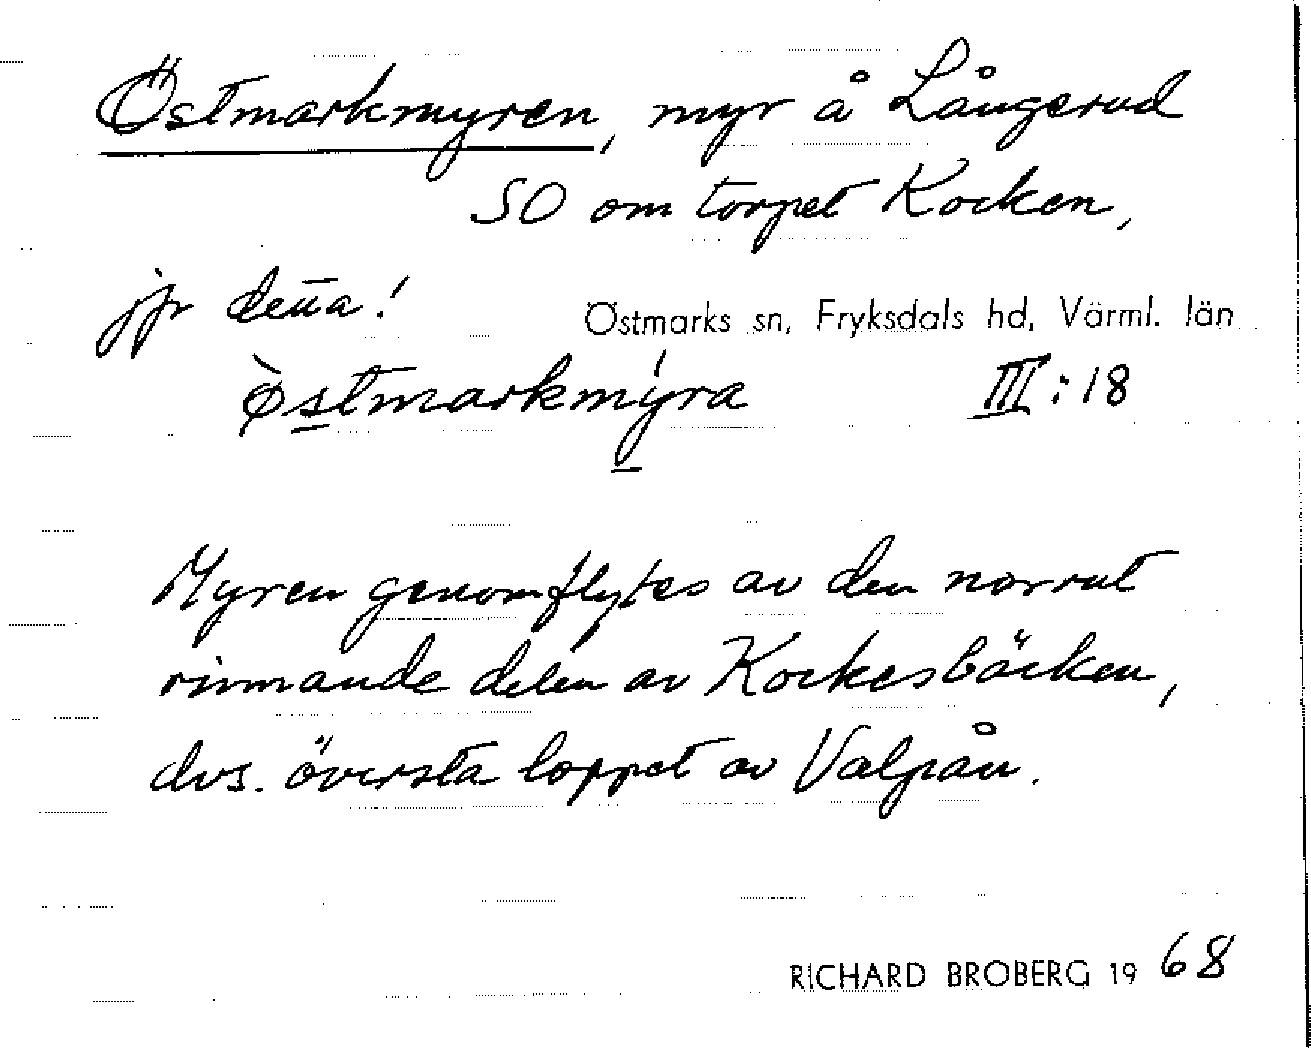 Östmarkmyren, myr å Långerud
SO om torpet Kocken,
jfr denna!
Östmarks sn, Fryksdals hd, Värml. län
Østmarkmyra III:18
Myren genomflytes av den norrut
rinnande delen av Kockesbäcken,
dvs. översta loppet av Valpån.
RICHARD BROBERG 1968